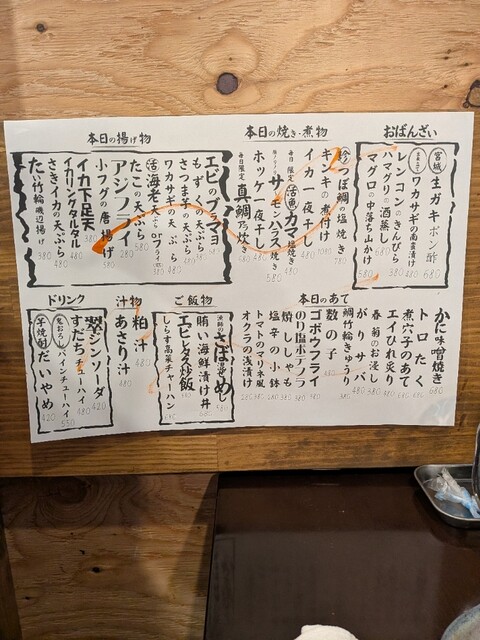 おばんざい
宮城 生ガキポン酢 680
ワカサギの南蛮漬け 480
レンコンのきんぴら
ハマグリの酒蒸し
マグロの中落ち山かけ 580
本日の焼き・煮物
つぼ鯛の塩焼き 780
キンキの煮付け 1080
イカ一夜干し 580
毎日限定 活魚カマ塩焼き 480
サーモンハラス焼き 580
ホッケ一夜干し 480
毎日限定 真鯛乃炊き 580
本日の揚げ物
エビのブラマヨ 580
もずくの天ぷら 380
さつま芋の天ぷら 380
ワカサギの天ぷら 480
活 海老の天ぷらorフライ
たこの天ぷら 580
アジフライ 280
小フグの唐揚げ 580
イカ下足天 380
イカリングタルタル 480
さきイカの天ぷら 480
たい竹輪磯辺揚げ 380
本日のあて
かに味噌焼き 680
トロたく
煮穴子のあて
エイひれ炙り
春菊のお浸し
がりサバ
鯛竹輪きゅうり
数の子
ゴボウフライ
のり塩ポテフラ 380
焼ししゃも 380
塩辛の小鉢 280
トマトのマリネ風 380
オクラの浅漬け 280
ご飯物
漁師のさば湯漬めし 580
賄い海鮮漬け丼 680
エビレタス炒飯
しらす高菜チャーハン
汁物
粕汁 480
あさり汁 480
ドリンク
翠ジンソーダ 420
すだちチューハイ 480
鬼おろし パインチューハイ 550
芋焼酎 だいやめ 420